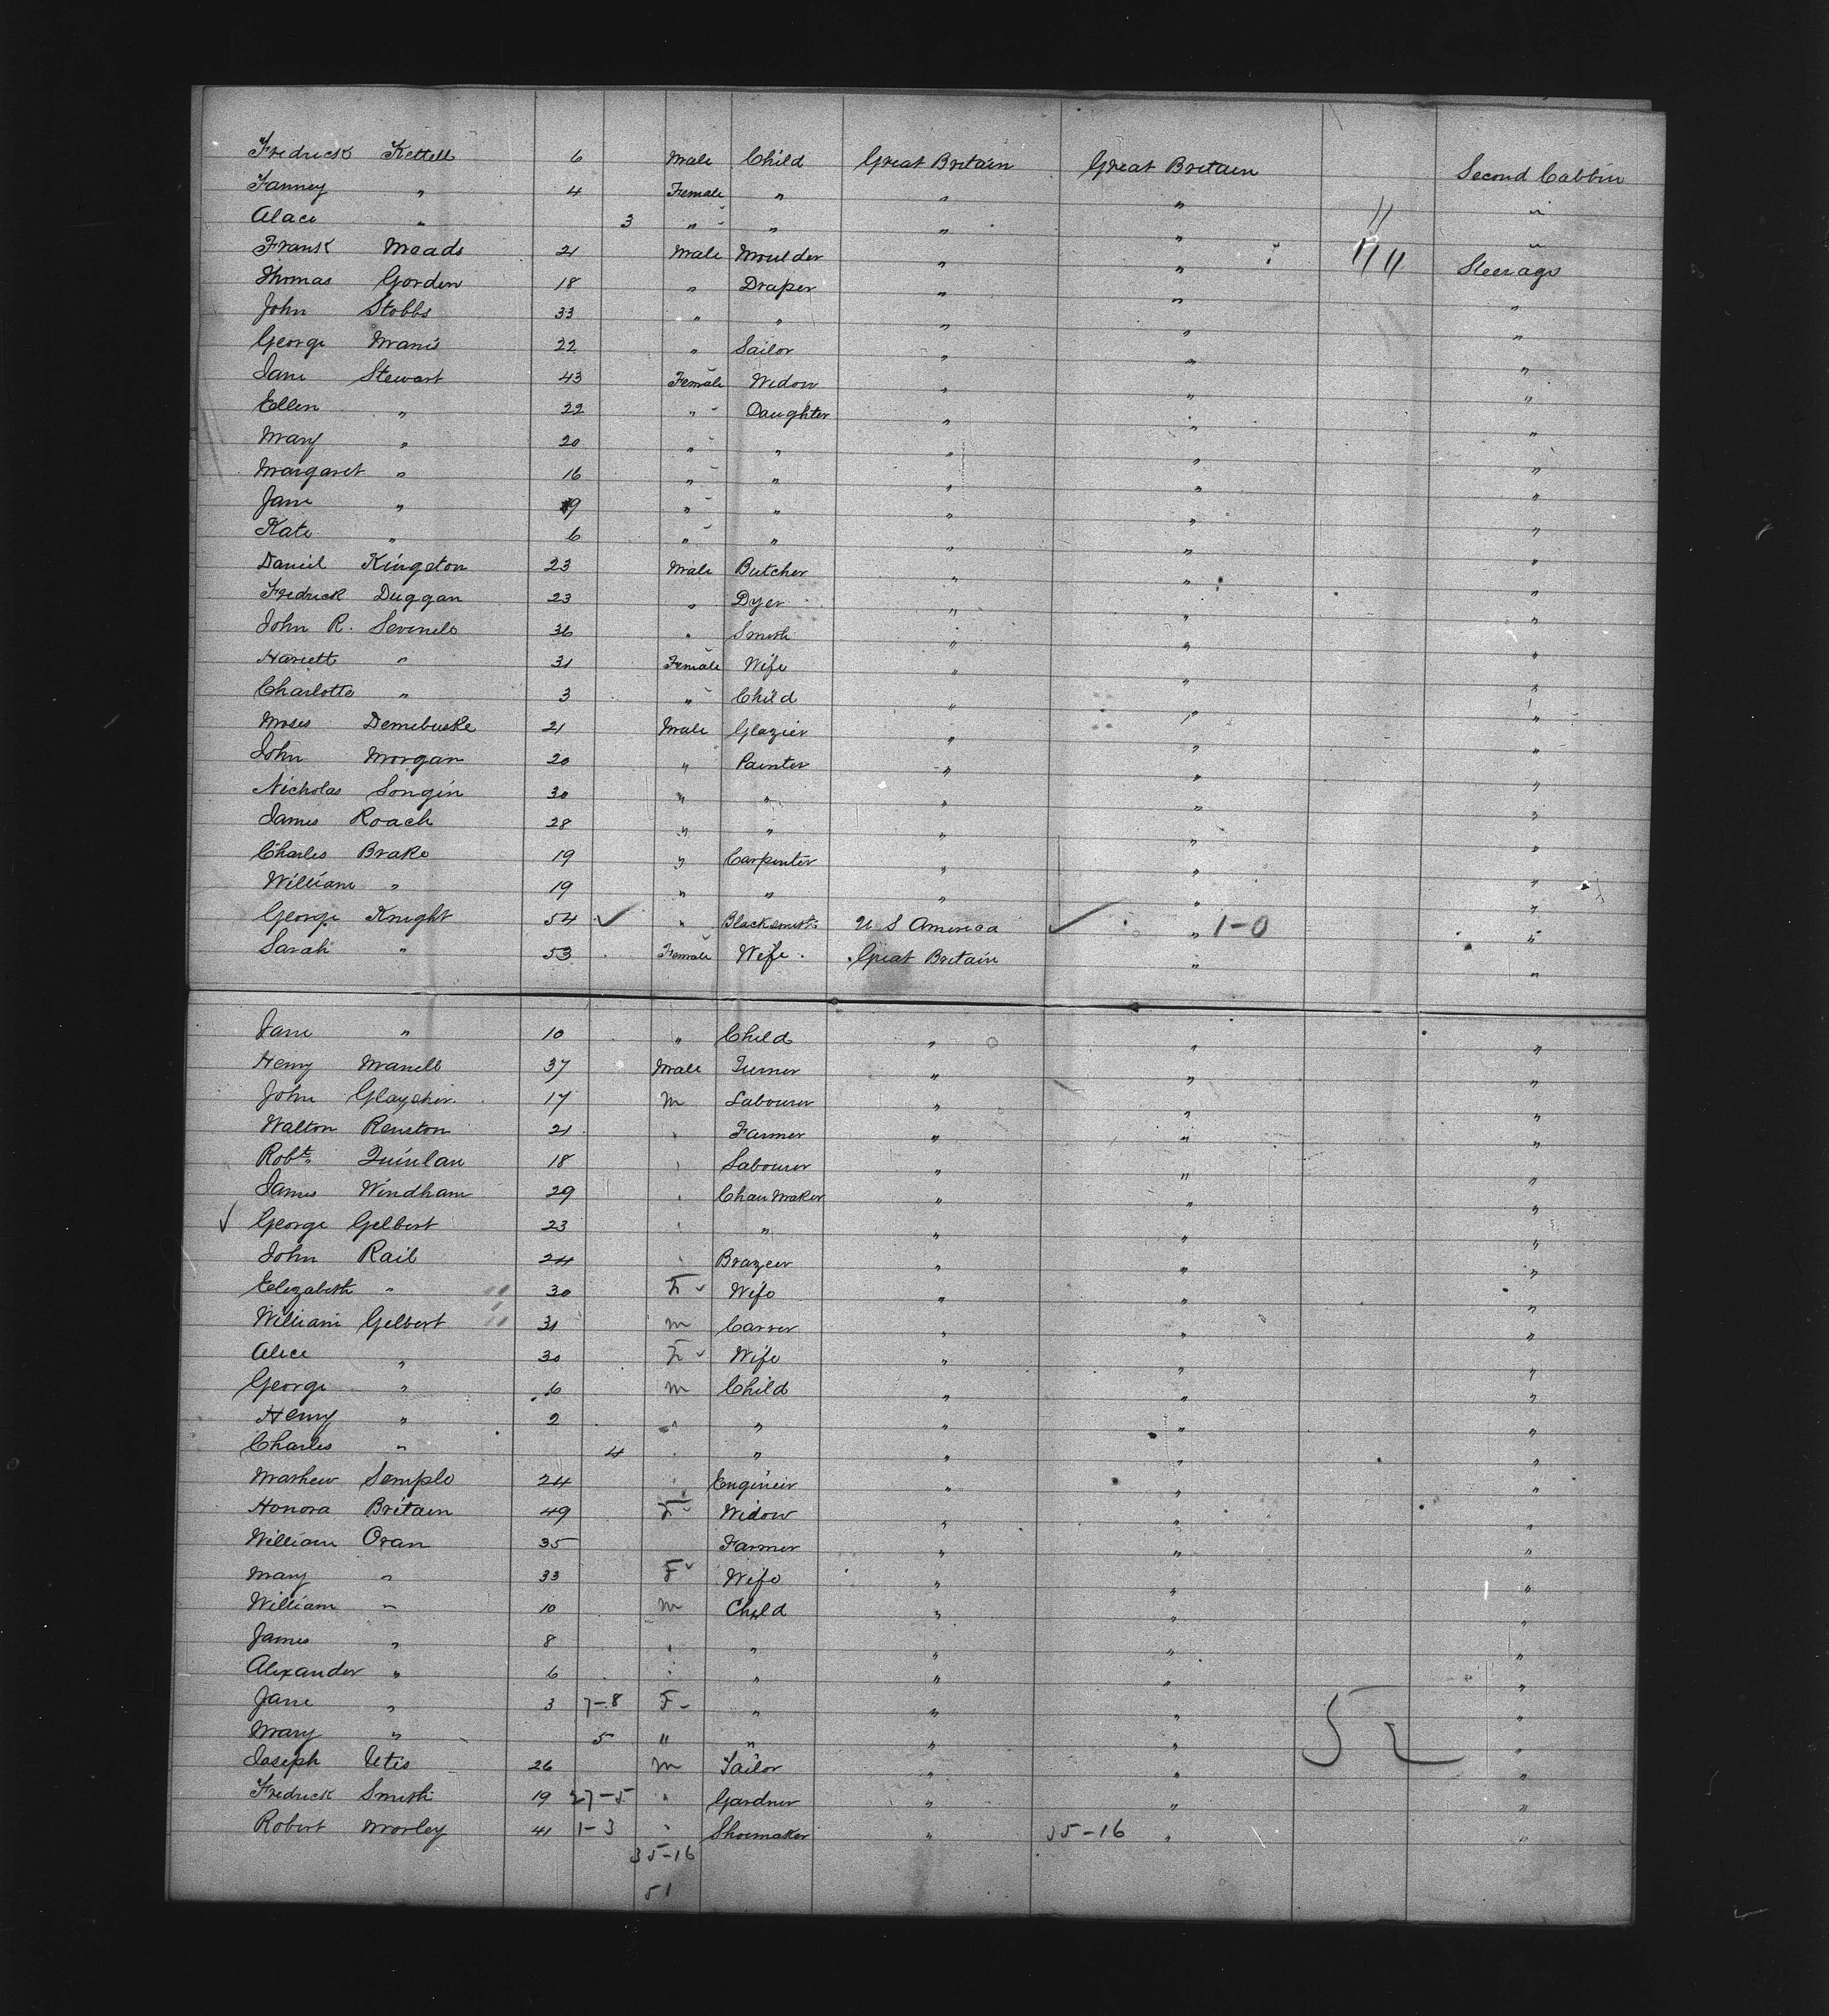 Fredrick Kettell 6 Male Child Great Britain Great Britain Second Cabbin
Fanney " 4 Female " " " "
Alace " 3 " " " " 11 "
Frank Meads 21 Male Moulder " " 1111 Steerage
Thomas Gorden 18 " Draper " " "
John Stobbs 33 " " " " "
George 22 " Sailor " " "
Jane Stewart 43 Female Widow " " "
Ellen " 22 " Daughter " " "
Mary " 20 " " " " "
Margaret " 16 " " " " "
Jane " 9 " " " " "
Kate " 6 " " " " "
Daniel Kingston 23 Male Butcher " " "
Fredrick Duggan 23 " Dyer " " "
John R. 36 " Smith " " "
Hariett " 31 Female Wife " " "
Charlotte " 3 " Child " " "
Moses Demebuske 21 Male Glazier " " "
John Morgan 20 " Painter " " "
Nicholas Songin 30 " " " " "
James Roach 28 " " " " "
Charles Brake 19 " Carpenter " " "
William " 19 " " " " "
George Knight 54 ✓ " Blacksmith U S America ✓ " 1-0 "
Sarah " 53 Female Wife Great Britain " "
Jane " 10 " Child " " "
Henry Manell 37 Male Turner " " "
John 17 m Labourer " " "
Walton Renston 21 " Farmer " " "
Robt Quinlan 18 " Labourer " " "
James Windham 29 " Chair Maker " " "
✓ George Gelbert 23 " " " " "
John Rail 24 " Brazeir " " "
Elizabeth " 30 F Wife " " "
William Gelbert 31 m Carver " " "
Alice " 30 F Wife " " "
George " 6 m Child " " "
Henry " 2 " " " " "
Charles " 4 " " " " "
Mathew Semple 24 " Engineir " " "
Honora Britain 49 F Widow " " "
William Oran 35 Farmer " " "
Mary " 33 F Wife " " "
William " 10 m Child " " "
James " 8 " " " " "
Alexander " 6 " " " " "
Jane " 3 7-8 F " " " "
Mary " 5 " " " " 52 "
Joseph Utis 26 m Tailor " " "
Fredrick Smith 19 27-5 " Gardner " " "
Robert Morley 41 1-3 " Shoemaker " 35-16 " "
35-16
51